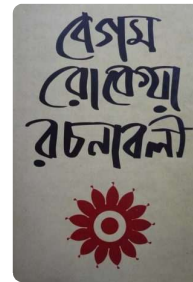 বেগম
রোকেয়া
রচনাবলী